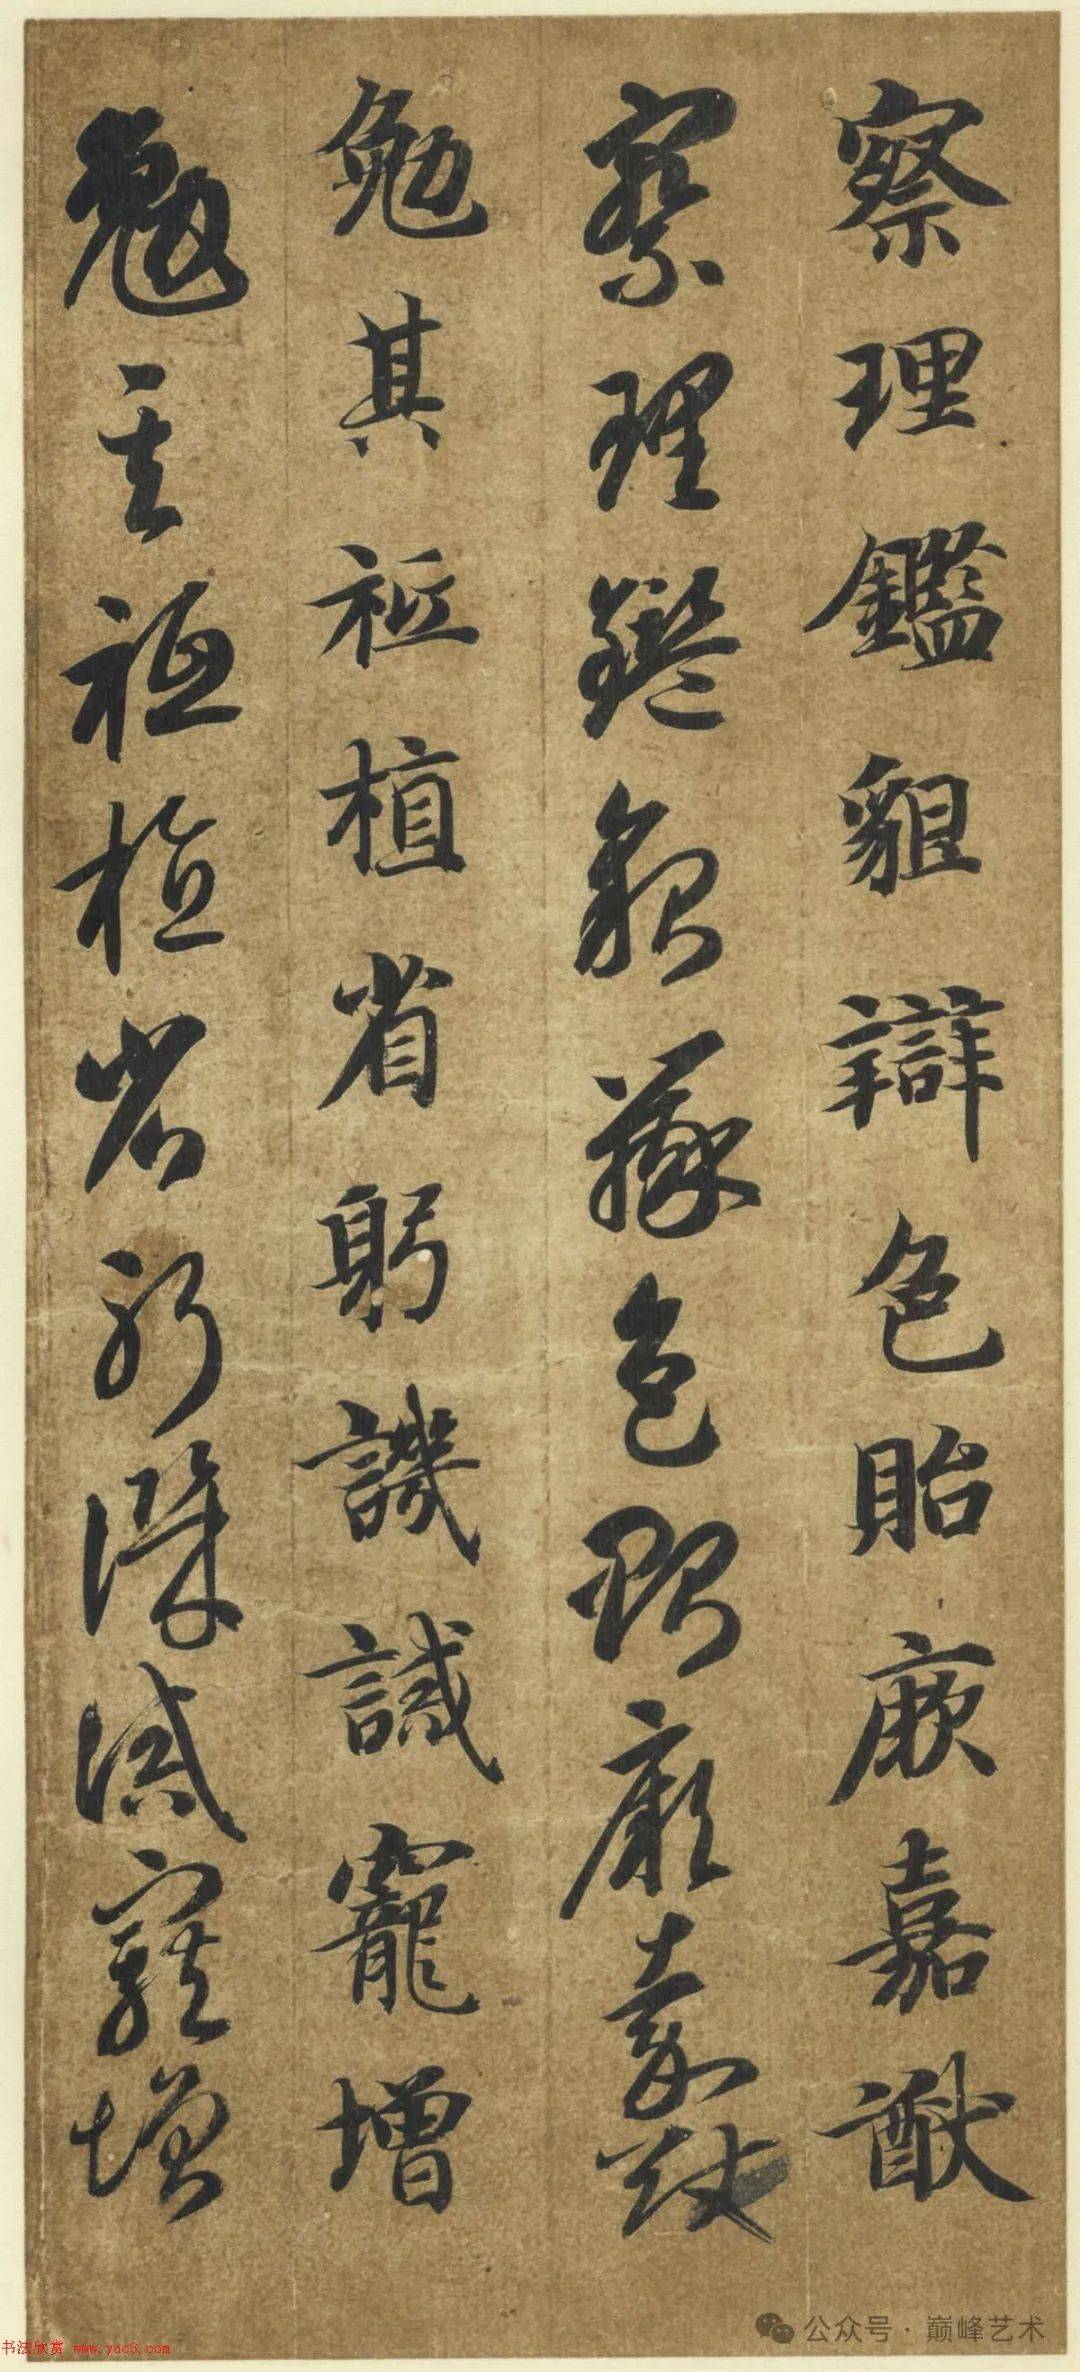 察理鑑貌辯色貽厥嘉猷
察理鑑貌辯色貽厥嘉猷
勉其祗植省躬譏誡寵增
勉其祗植省躬譏誡寵增
书法欣赏 www.yac8.com
公众号·巅峰艺术